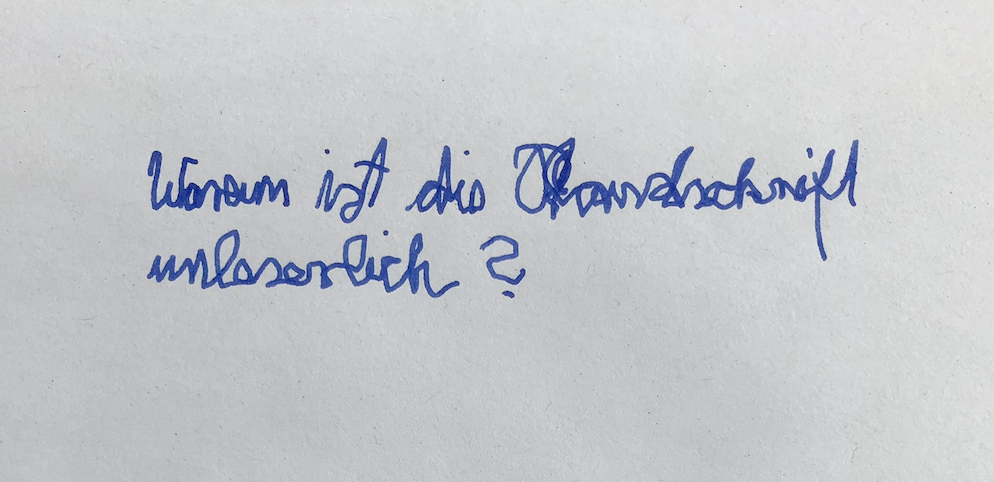 Warum ist die Handschrift
unleserlich ?